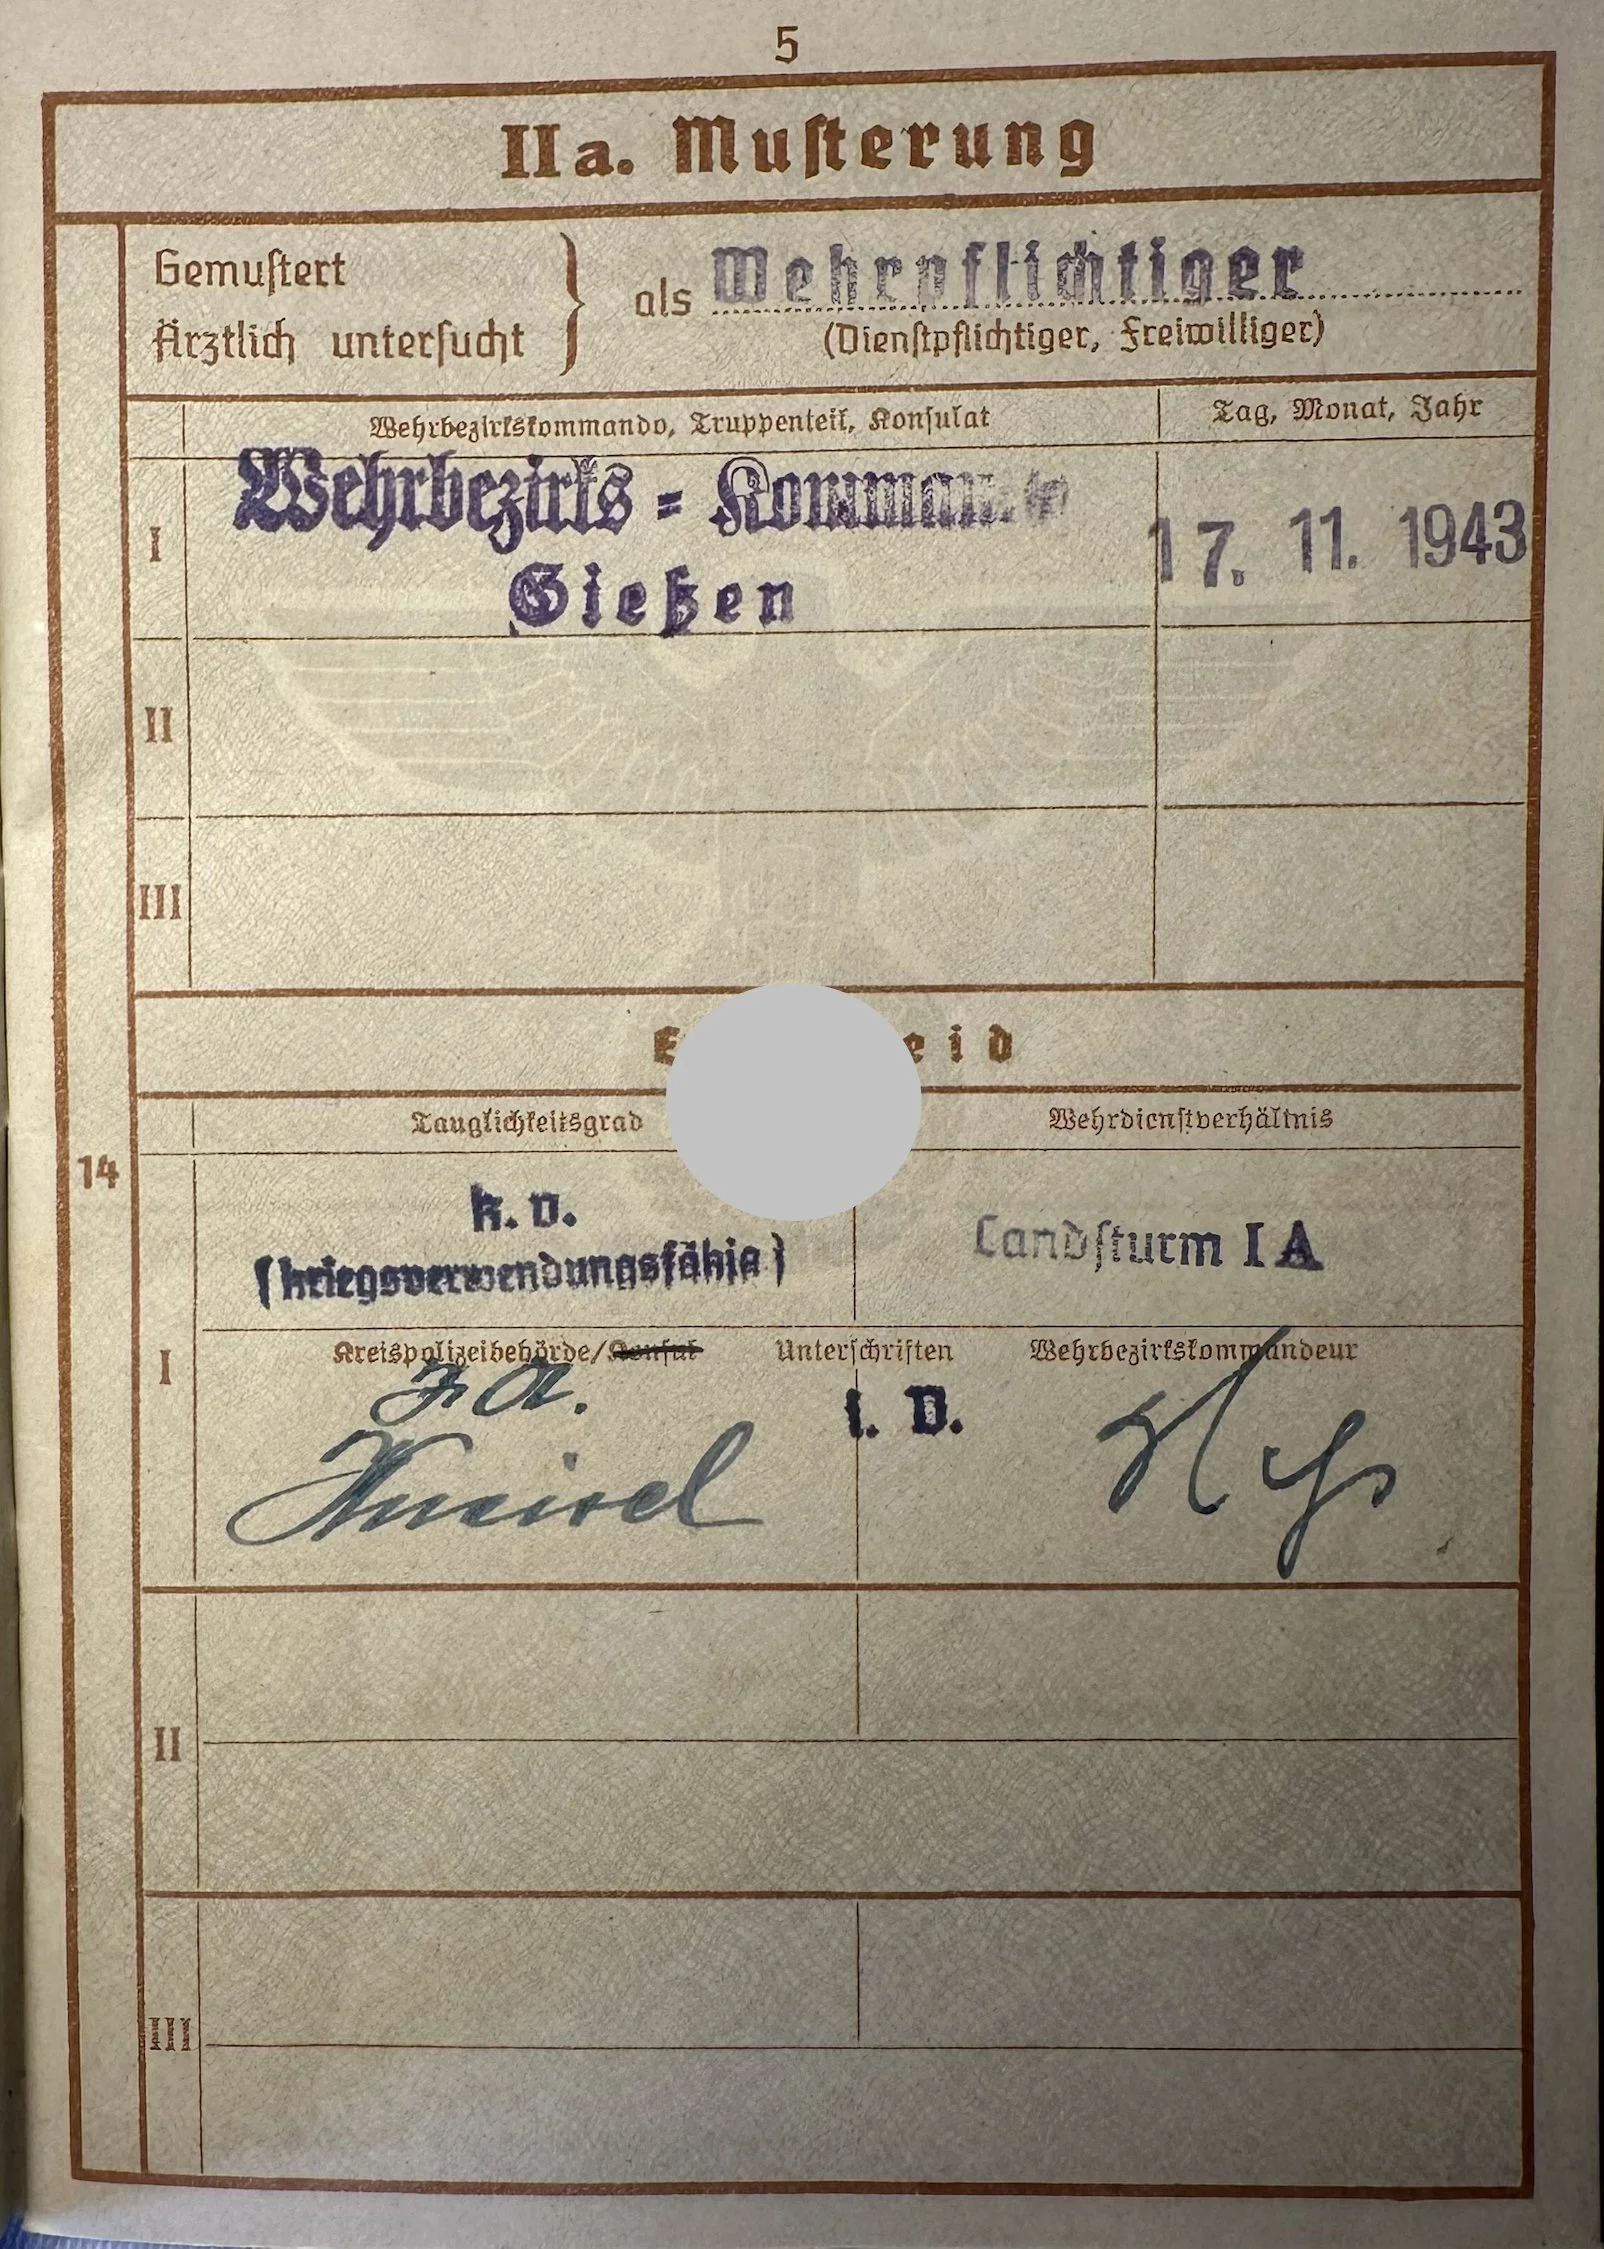 5
IIa. Muſterung
Gemuſtert
Ärztlich unterſucht
als Wehrpflichtiger
(Dienſtpflichtiger, Freiwilliger)
Wehrbezirkskommando, Truppenteil, Konſulat
Tag, Monat, Jahr
I
Wehrbezirks = Kommando
Gießen
17. 11. 1943
II
III
eid
Tauglichkeitsgrad
Wehrdienſtverhältnis
14
k. v.
(kriegsverwendungsfähig)
Landſturm I A
I
Kreispolizeibehörde/Konſul
Unterſchriften
Wehrbezirkskommandeur
I. V.
II
III